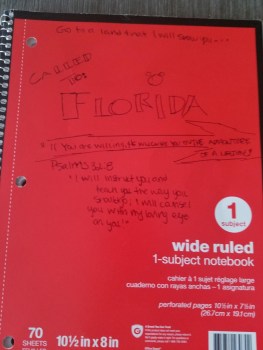 Go to a land that I will show you...
CALLED
TO:
FLORIDA
Psalms 32:8
"I will instruct you and
teach you the way you
should go; I will counsel
you with my loving eye
on you."
1
subject
wide ruled
1-subject notebook
cahier à 1 sujet réglage large
cuaderno con rayas anchas - 1 asignatura
perforated pages 10½ in x 7½ in
(26.7cm x 19.1cm)
70
SHEETS
10½ in x 8 in